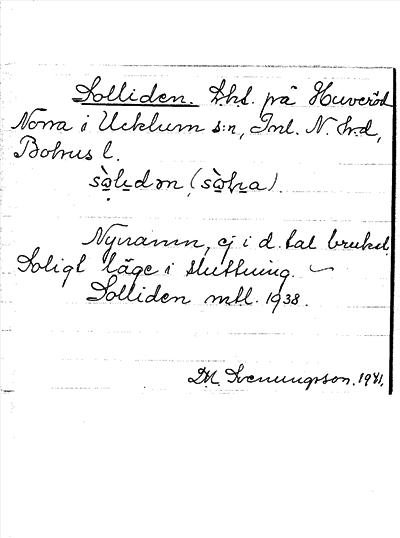 Solliden. Lht. på Huveröd
Norra i Ucklum s:n, Inl. N. hd,
Bohus l.
Nynamn, ej i d. tal brukl.
Soligt läge i sluttning.
Solliden mtl. 1938.
D.M. Svenungsson. 1941.